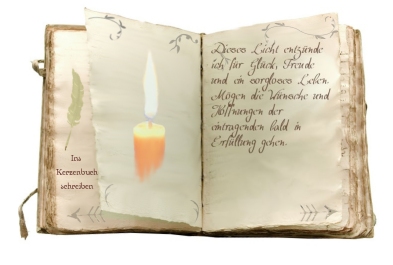 Ins
Kerzenbuch
schreiben
Dieses Licht entzünde
ich für Glück, Freude
und ein sorgloses Leben.
Mögen die Wünsche und
Hoffnungen der
eintragenden bald in
Erfüllung gehen.